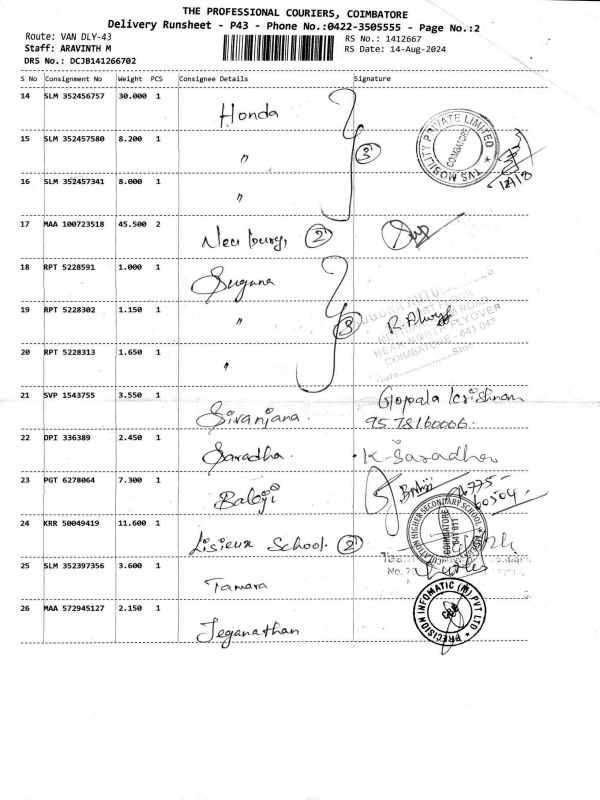 THE PROFESSIONAL COURIERS, COIMBATORE
Delivery Runsheet - P43 - Phone No.:0422-3505555 - Page No.:2
Route: VAN DLY-43
RS No.: 1412667
Staff: ARAVINTH M
RS Date: 14-Aug-2024
DRS No.: DCJB141266702
S No Consignment No Weight PCS Consignee Details Signature
14 SLM 352456757 30.000 1 Honda
15 SLM 352457580 8.200 1 〃 3
16 SLM 352457341 8.000 1 〃
TVS MOBILITY PRIVATE LIMITED
COIMBATORE
17 MAA 100723518 45.500 2 Neuburg, 2
18 RPT 5228591 1.000 1 Suguna
19 RPT 5228302 1.150 1 〃 3
20 RPT 5228313 1.650 1 〃
NEAR NORTH FLYOVER
COIMBATORE - 641 043
21 SVP 1543755 3.550 1 Sivanjana. Gopala Krishnan
9578160006.
22 DPI 336389 2.450 1 Saradha. K. Saradha
23 PGT 6278064 7.300 1 Balaji
24 KRR 50049419 11.600 1 Lisieux School. 2
HIGHER SECONDARY SCHOOL
COIMBATORE
641 011
25 SLM 352397356 3.600 1 Tamara
26 MAA 572945127 2.150 1 Jeganathan
PRECISION INFOMATIC (M) PVT LTD
CBE